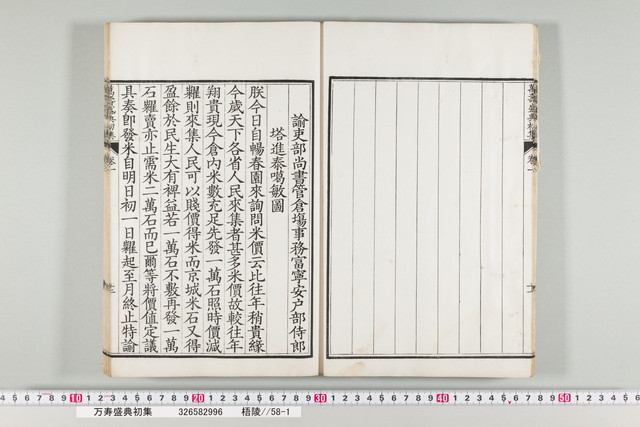 萬壽盛典初集
卷一
諭吏部尚書管倉塲事務富寧安戸部侍郎
塔進泰噶敏圖
朕今日自暢春園來詢問米價云比往年稍貴緣
今歲天下各省人民來集者甚多米價故較往年
翔貴現今倉内米數充足先發一萬石照時價減
糶則來集人民可以賤價得米而京城米石又得
盈餘於民生大有裨益若一萬石不敷再發一萬
石糶賣亦止需米二萬石而已爾等將價值定議
具奏卽發米自明日初一日糶起至月終止特諭
卷一
10 20 30 40 50
万寿盛典初集 326582996 梧陵//58-1